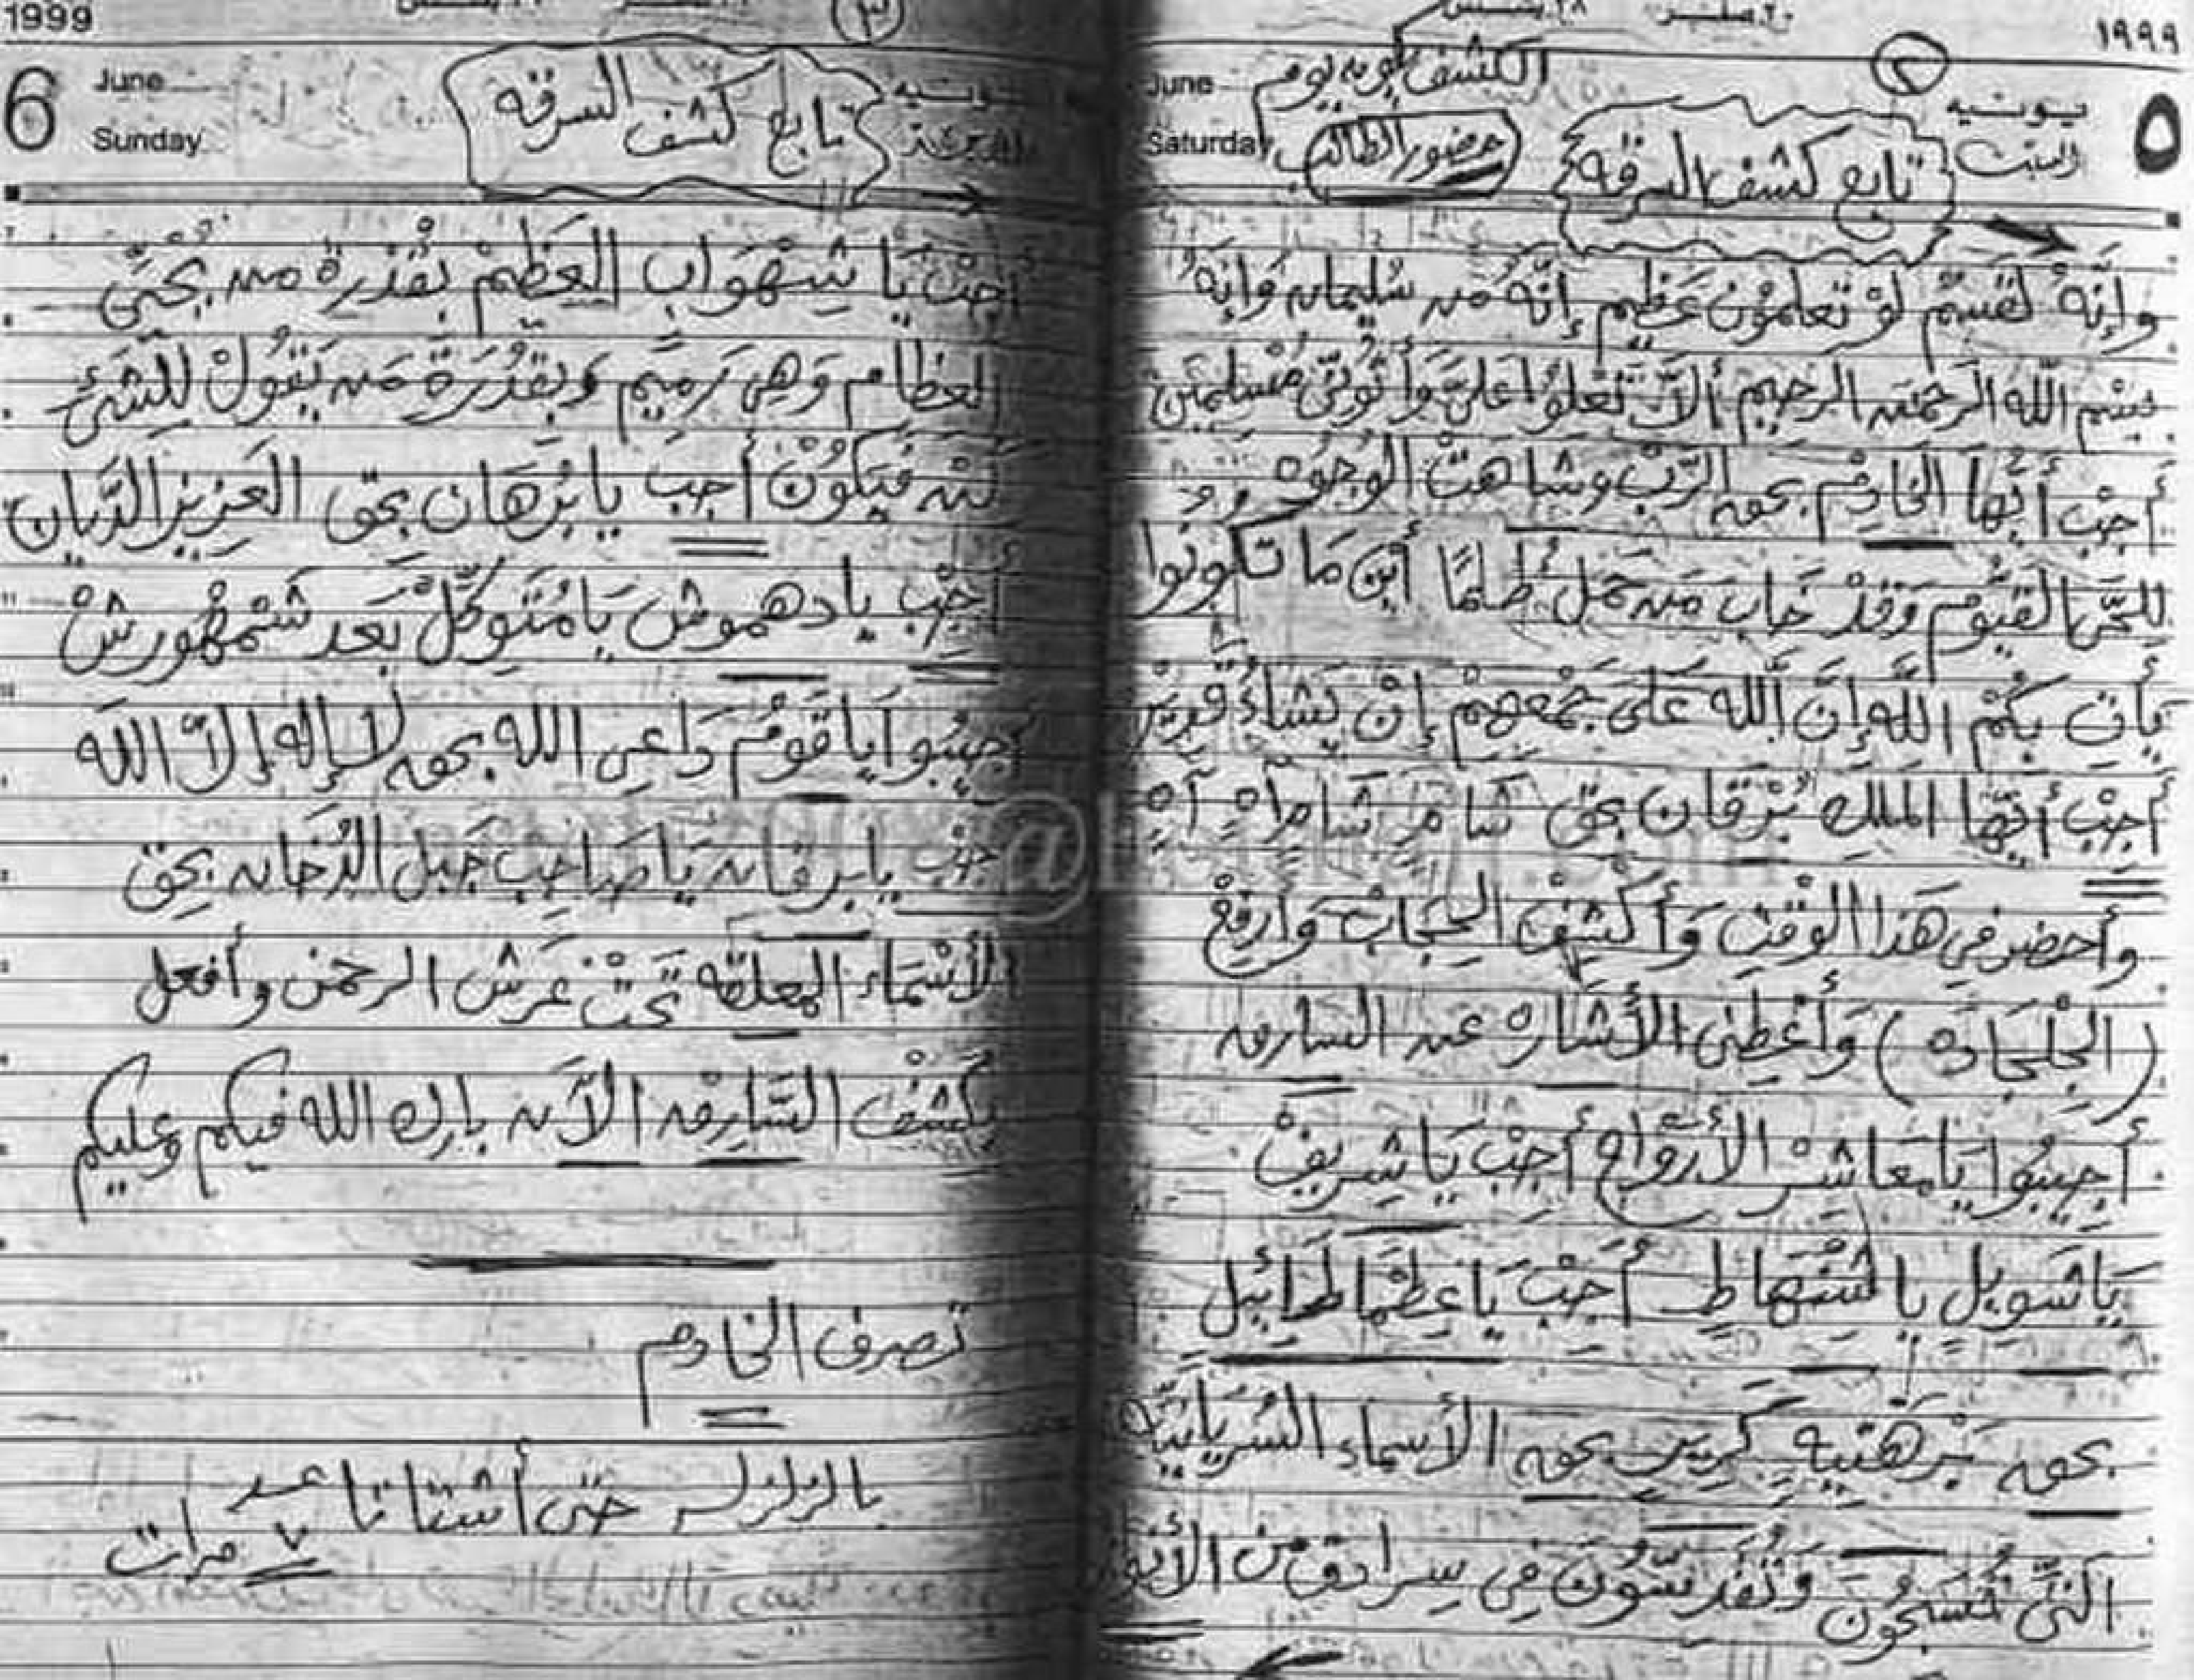 ١٩٩٩
٥
يونيه
السبت
June
Saturday
٢
تابع كشف السرقه
الكشف يوم
حضور الطالب
وإنَّهُ لَقَسَمٌ لَوْ تَعلمُونَ عَظِيم إنَّهُ مَن سُليمان وَإنَّهُ
بِسْمِ اللّه الرَّحمن الرحيم ألاَّ تَعْلُوا عَلىَّ وَأْتُونِى مُسْلِمِينَ
أجِبْ أيُّهَا الخَادِمْ بحق الرَّبْ وشَاهَتْ الْوجُوُه
لِلحَّى القَيُومِ وَقَدْ خَابَ مَن حَمَلَ ظُلمًا أين مَا تكُونُوا
يَأتِ بِكُمْ اللَّه إنَّ اللَّه عَلىَ جَمْعِهِمْ إنْ يَشَاءُ قَدِيرْ
أجِبْ أيُّهَا الملك بُرْقَان بحَقِ شَامِرٍ شَامِرٍ آهٍ آهٍ
وأحضر فى هَذا الوَقْت وَأكْشِفْ الحِجَابْ وَأرفِعْ
(الجِلْجَادَه) وَأعْطِنى الأشَارَه عن السارق
أجِيبُوا يَا مَعَاشِرْ الأرْوَاح أجِبْ يَا شَرِيفْ
يَا شَوِيلٍ يا شَنْهَاطٍ أجِبْ يَا عِطْمَاطَرَائيل
بحق بَرْهَتيه كَرِيرٍ بحق الأسماء السُرْيَانِيَّه
التَّى تُسَبِحُونَ وَتُقَدِسُّونَ فِى سِرادق من الأنو
1999
6
June
Sunday
يونيه
٣
تابع كشف السرقه
أجِبْ يَا شِهْوَاب العَظِيمْ بقُدْرَة من يُحْيىَ
العظام وَهِىَ رَمِيمٍ وَبِقُدُرَةِ مَن يَقُولْ لِلشَىءِ
كُنْ فَيَكُوُنْ أجِبَ يا بُرْهَان بحق العَزِيز الدَّيان
أجِبْ يا دهموش يَا مُتَوكِّلْ بَعد شَمْهُورش
أجيبُوا يَا قَوْمُ دَاعِى الله بحق لا إله إلاَّ الله
أجِبْ يا برقان يَا صَاحِبَ جَبل الدُّخَان بحَقِ
الأسْمَاء المعلقه تَحْتَ عَرْش الرحمن وأفعل
بكَشْف السَّارِق الآن بارك الله فيكم وعليكم
تصرف الخادم
بالزلزله حتى أشتاتا عدد
٧ مرات